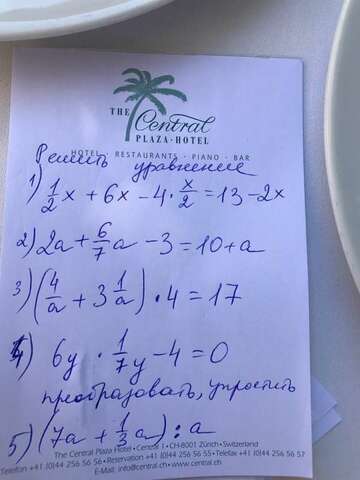 THE Central
PLAZA · HOTEL
HOTEL · RESTAURANTS · PIANO · BAR
Решить уравнение
1) 1/2 x + 6x - 4 · x/2 = 13 - 2x
2) 2a + 6/7 a - 3 = 10 + a
3) (4/a + 3 1/a) · 4 = 17
4) 6y · 1/7 y - 4 = 0
преобразовать, упростить
5) (7a + 1/3 a) : a
The Central Plaza Hotel · Central 1 · CH-8001 Zürich · Switzerland
Telefon +41 (0)44 256 56 56 · Reservation +41 (0)44 256 56 55 · Telefax +41 (0)44 256 56 57
E-Mail: info@central.ch · www.central.ch